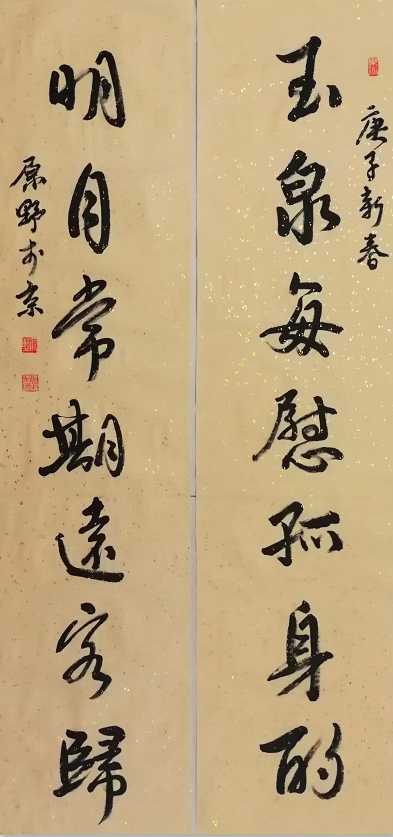 庚子新春
玉泉每慰孤身酌
明月常期遠客歸
原野於京